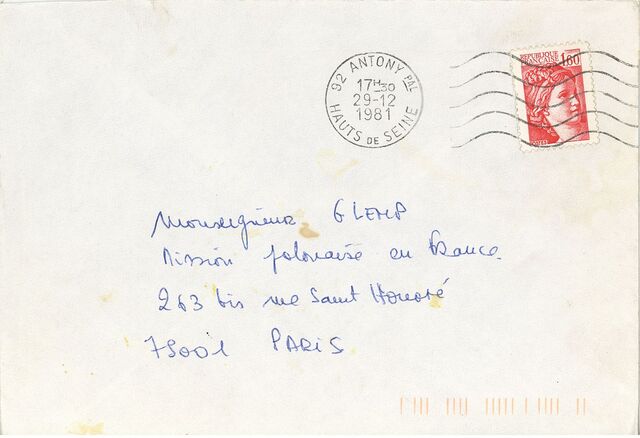 92 ANTONY PAL
17H30
29-12
1981
HAUTS DE SEINE
REPUBLIQUE
FRANÇAISE
1,60
Monseigneur GLEMP
Mission polonaise en France
263 bis rue Saint Honoré
75001 PARIS